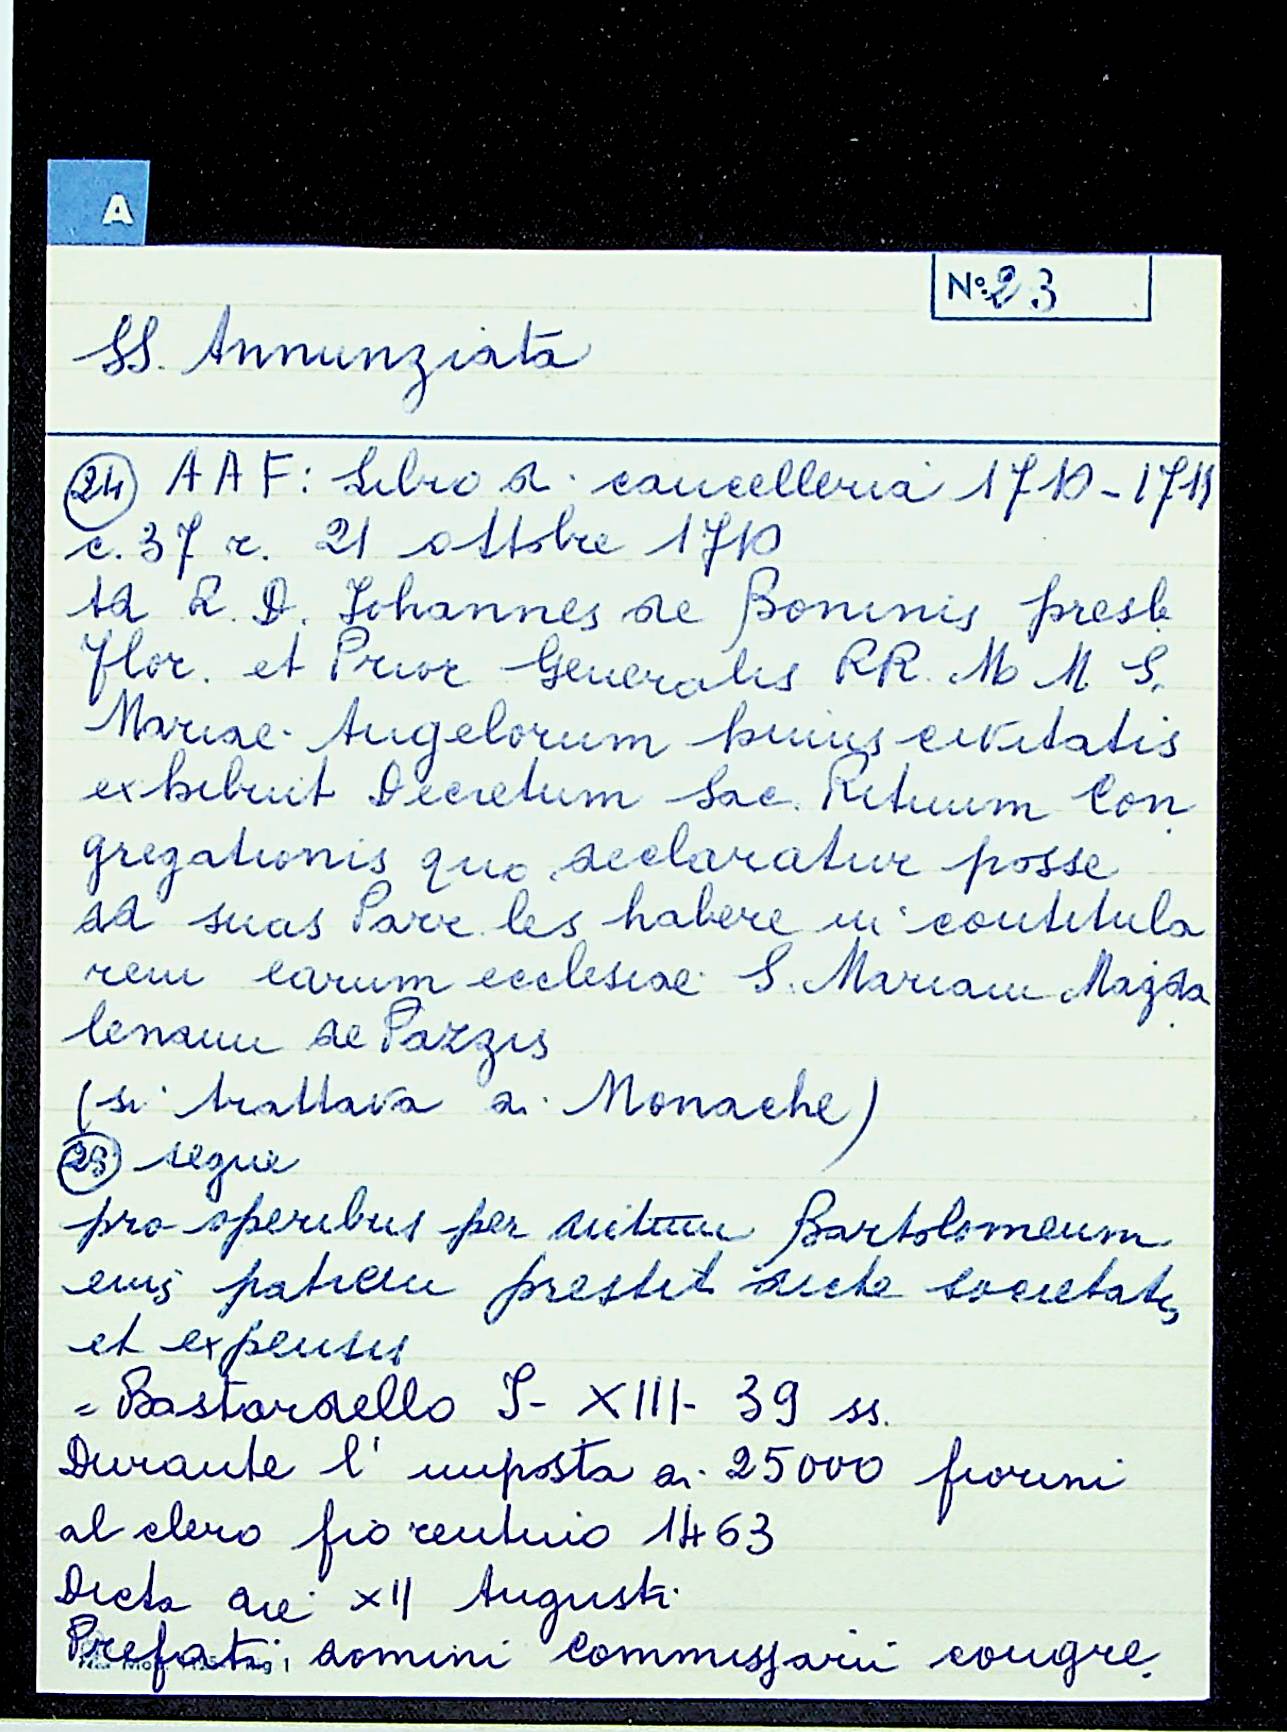 A
N° 23
SS. Annunziata
24 AAF: Libro di cancelleria 1710-1711
c. 37 r. 21 ottobre 1710
Ad R. D. Johannes de Boninis presb.
Flor. et Prior Generalis RR. M M S.
Mariae Angelorum huius civitatis
exhibuit Decretum Sac. Rituum Con
gregationis quo declaratur posse
ad suas Parr.les habere in contitula
rem earum ecclesiae S. Mariam Magda
lenam de Pazzis
(si trattava di Monache)
23 segue
pro operibus per dictum Bartolomeum
eius patrem prestit dicte societatis
et expensis
= Bastardello I- XIII- 39 ss.
Durante l' imposta di 25000 fiorini
al clero fiorentino 1463
Dicta die XII Augusti
Prefati domini Commissarii congre